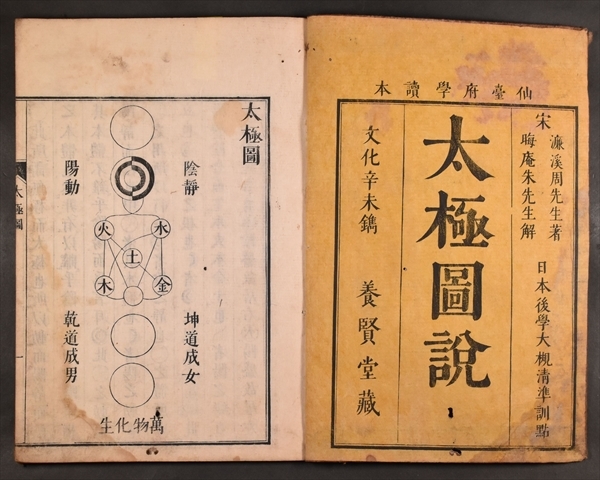 仙臺府學讀本
宋
濂溪周先生著
晦庵朱先生解
日本後學大槻清準訓點
太極圖說
文化辛未鐫
養賢堂藏
太極圖
陰靜
陽動
火
水
土
木
金
坤道成女
乾道成男
萬物化生
太極圖
一